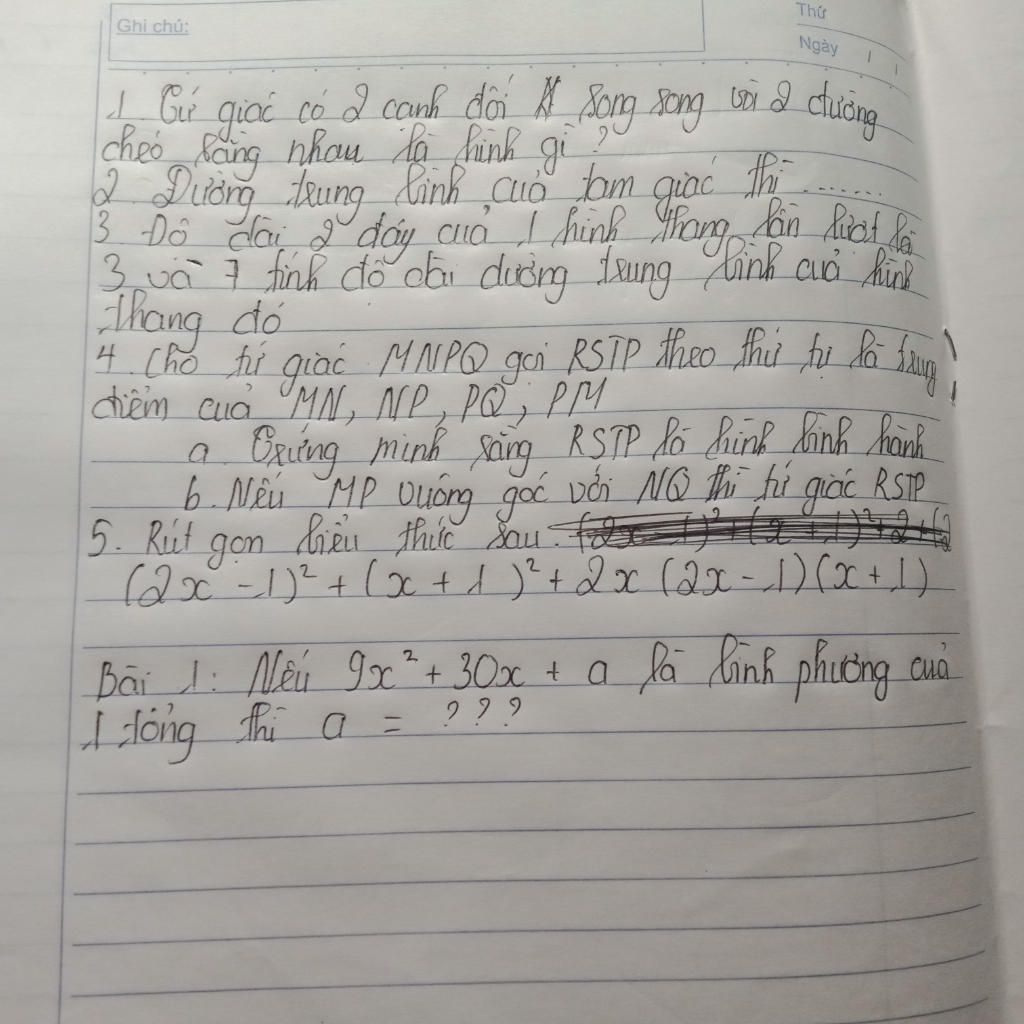 Ghi chú:
Thứ
Ngày
1. Tứ giác có 2 cạnh đối song song với 2 đường
chéo bằng nhau là hình gì?
2. Đường trung bình của tam giác thì ........
3. Độ dài 2 đáy của 1 hình thang lần lượt là
3 và 7 tính độ dài đường trung bình của hình
thang đó
4. Cho tứ giác MNPQ gọi RSTP theo thứ tự là trung
điểm của MN, NP, PQ, PM
a. Chứng minh rằng RSTP là hình bình hành
b. Nếu MP vuông góc với NQ thì tứ giác RSTP
5. Rút gọn biểu thức sau.
(2x - 1)² + (x + 1)² + 2x (2x - 1)(x + 1)
Bài 1: Nếu 9x² + 30x + a là bình phương của
1 tổng thì a = ???